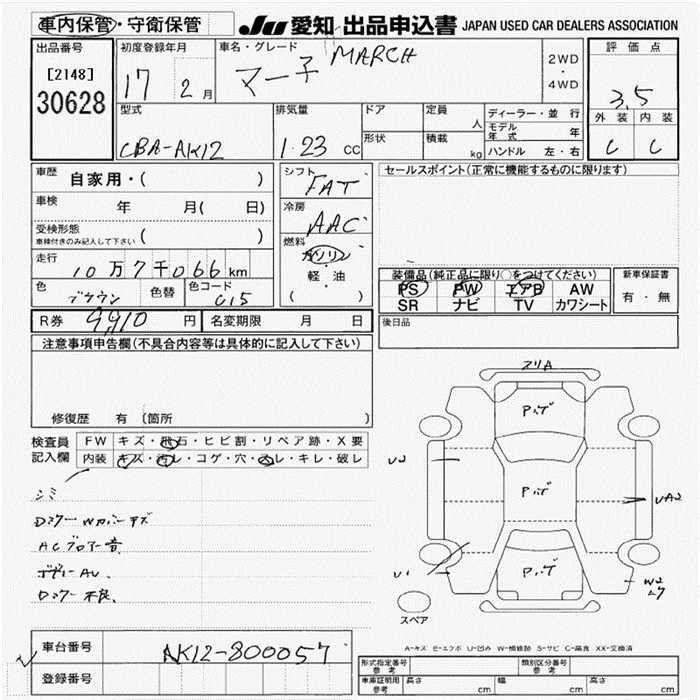 車内保管・守衛保管 JU 愛知 出品申込書 JAPAN USED CAR DEALERS ASSOCIATION
出品番号 初度登録年月 車名・グレード MARCH 2WD・4WD 評価点
[2148] 17 2月 マーチ 3.5
30628
型式 排気量 ドア 定員 人 ディーラー・並行 外装 内装
CBA-AK12 1.23 CC 形状 積載 kg モデル年式 年 C C
ハンドル 左・右
車歴 自家用・( ) シフト FAT セールスポイント(正常に機能するものに限ります)
車検 年 月( 日) 冷房 AAC
受検形態 車検付きのみ記入して下さい ( ) 燃料 ガソリン・軽・油 ( )
走行 10万7千066km 装備品(純正品に限り○をつけてください) 新車保証書
PS PW エアB AW 有・無
SR ナビ TV カワシート
色 ブラウン 色替 色コード C15
R券 9,910円 名変期限 月 日 後日品
注意事項申告欄(不具合内容等は具体的に記入して下さい)
修復歴 有 (箇所 )
検査員記入欄 FW キズ・飛石・ヒビ割・リペア跡・X要
内装 キズ・汚レ・コゲ・穴・スレ・キレ・破レ
シミ
ACブロアー音
スリA
Pメゲ
Pメゲ
Pメゲ
U2
UA2
U1
W2
スペア
A-キズ E-エクボ U-凹み W-補修跡 S-サビ C-腐食 XX-交換済
車台番号 AK12-800057
登録番号
型式指定番号 参考 類別区分番号 参考
車庫証明用 参考 長さ cm 幅 cm 高さ cm